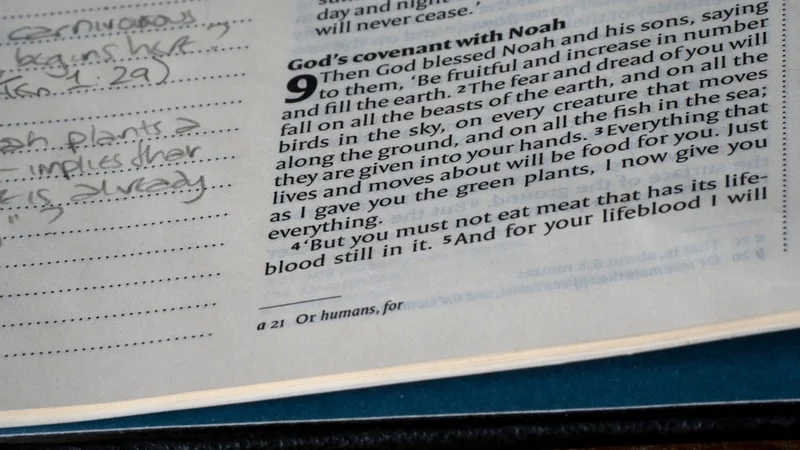 carnivorous
begins here
(Gen 1:29)
plants a
- implies ther
is already
day and night
will never cease.'
God's covenant with Noah
9 Then God blessed Noah and his sons, saying
to them, 'Be fruitful and increase in number
and fill the earth. 2 The fear and dread of you will
fall on all the beasts of the earth, and on all the
birds in the sky, on every creature that moves
along the ground, and on all the fish in the sea;
they are given into your hands. 3 Everything that
lives and moves about will be food for you. Just
as I gave you the green plants, I now give you
everything.
4 'But you must not eat meat that has its life-
blood still in it. 5 And for your lifeblood I will
a 21 Or humans, for